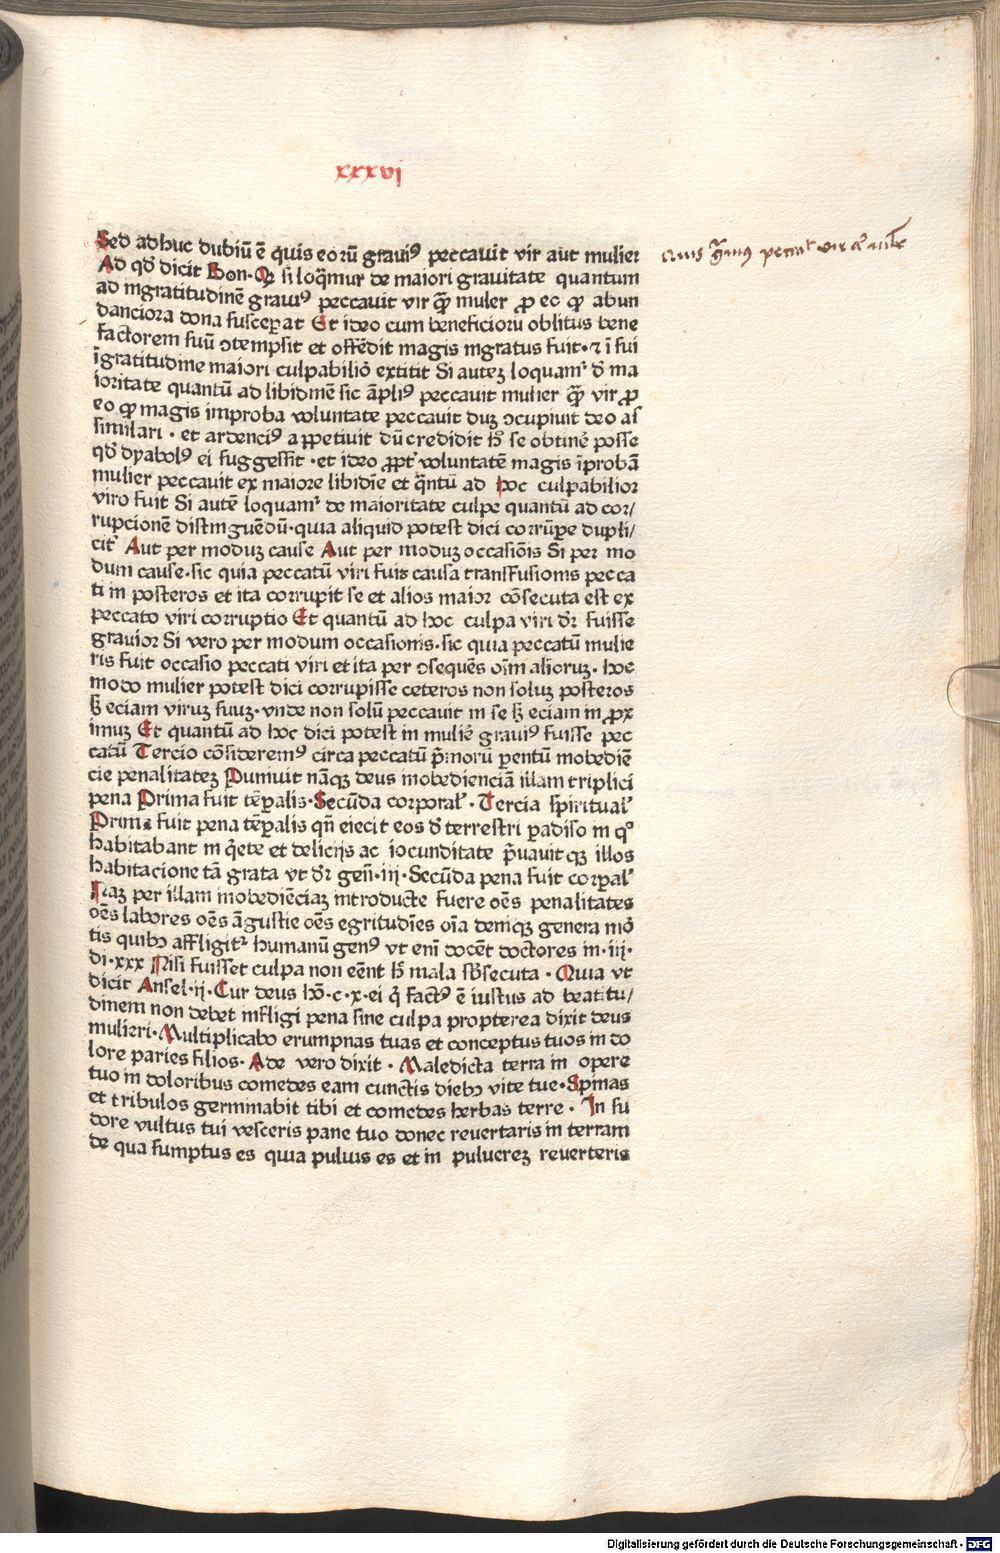 xxxvj
Sed adhuc dubiū ē quis eorū graui⁹ peccauit vir aut mulier
Quis grauius peccat vir
Ad qd̄ dicit Bon. Q si loq̄mur de maiori grauitate quantum
ad ingratitudinē graui⁹ peccauit vir q̄ꝫ muler ꝓ eo ꝙ abun
danciora dona susceperat Et ideo cum beneficioru oblitus bene
factorem suū ꝯtempsit et offēdit magis ingratus fuit· ⁊ ī sui
īgratitudine maiori culpabilio᷑ extitit Si autez loquamᷣ d̄ ma
ioritate quantū ad libidinē sic āpli⁹ peccauit mulier q̄ꝫ vir ꝓ
eo ꝙ magis improba voluntate peccauit duꝫ ꝯcupiuit deo as
similari · et ardenci⁹ appetiuit dū credidit h̄ se obtinē posse
qd̄ dyabol⁹ ei suggessit ·et ideo ꝓpt᷑ voluntatē magis īprobā
mulier peccauit ex maiore libidīe et q̄ntū ad hoc culpabilior
viro fuit Si autē loquamᷣ de maioritate culpe quantū ad cor/
rupcionē distinguēdū· quia aliquid potest dici corrūpe dupli/
cit᷑ Aut per moduꝫ cause Aut per moduꝫ occasiōis Si per mo
dum cause· sic quia peccatū viri fuit causa transfusionis pecca
ti in posteros et ita corrupit se et alios maior cōsecuta est ex
peccato viri corruptio Et quantū ad hoc culpa viri dr̄ fuisse
grauior Si vero per modum occasionis· sic quia peccatū mulie
ris fuit occasio peccati viri et ita per ꝯsequēs oīm alioruꝫ · hoc
modo mulier potest dici corrupisse ceteros non soluꝫ posteros
sꝫ eciam viruꝫ suuꝫ· vnde non solū peccauit in se sꝫ eciam in ꝓx
imuꝫ Et quantū ad hoc dici potest in mulie᷑ graui⁹ fuisse pec
catū Tercio cōsiderem⁹ circa peccatū p̄moru parentū inobediē
cie penalitatez Puniuit nāqꝫ deus inobedienciā illam triplici
pena Prima fuit tēꝑalis· Secūda corporal᷑ · Tercia spiritual᷑
Prima fuit pena tēꝑalis qn̄ eiecit eos d̄ terrestri ꝑadiso in qͦ
habitabant in q̄ete et delicijs ac iocunditate p̄uauit qꝫ illos
habitacione tā grata vt dr̄ gen̄· iij · Secūda pena fuit corꝑal᷑
Naꝫ per illam inobediēciaꝫ introducte fuere oēs penalitates
oēs labores oēs āgustie oēs egritudīes oīa deniqꝫ genera mo᷑
tis quibꝰ affligitᷣ humanū gen⁹ vt enī docēt doctores in · iij ·
di· xxx Nisi fuisset culpa non eēnt h̄ mala sb̄secuta · Quia vt
dicit Ansel· ij · Cur deus hō· c · x· ei q̇ fact⁹ ē iustus ad beatitu/
dinem non debet infligi pena sine culpa propterea dixit deus
mulieri· Multiplicabo erumpnas tuas et conceptus tuos in do
lore paries filios· Ade vero dixit · Maledicta terra in opere
tuo in doloribus comedes eam cunctis diebꝰ vite tue· Spinas
et tribulos germinabit tibi et comedes herbas terre · In su
dore vultus tui vesceris pane tuo donec reuertaris in terram
de qua sumptus es quia puluis es et in puluerez reuerteris
Digitalisierung gefördert durch die Deutsche Forschungsgemeinschaft - DFG